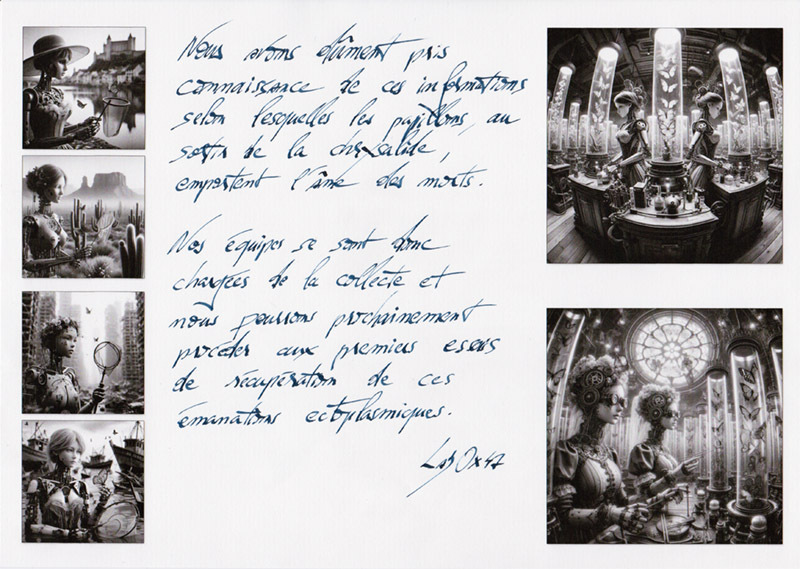 Nous avons dûment pris
connaissance de ces informations
selon lesquelles les papillons, au
sortir de la chrysalide,
emportent l'âme des morts.
Nos équipes se sont donc
chargées de la collecte et
nous pourrons prochainement
procéder aux premiers essais
de récupération de ces
émanations ectoplasmiques.
Lab Ox47